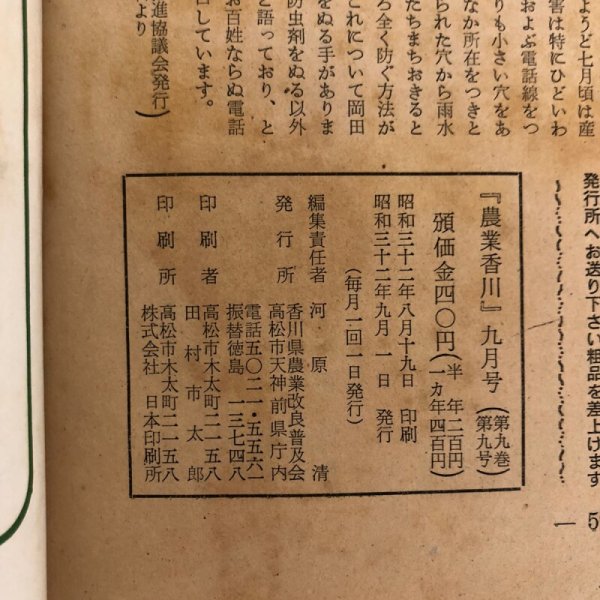 発行所へお送り下さい粗品を差上げます
ようど七月頃は産
害は特にひどいわ
および電話線をつ
りも小さい穴をあ
なか所在をつきと
られた穴から雨水
たちまちおきると
ろ全く防ぐ方法が
これについて岡田
をぬる手がありま
防虫剤をぬる以外
と語っており、と
お百姓ならぬ電話
召しています。
進協議会発行)
より
『農業香川』九月号(第九巻第九号)
頒価金四〇円(半年二百円 一カ年四百円)
昭和三十二年八月十九日 印刷
昭和三十二年九月一日 発行
(毎月一回一日発行)
編集責任者 河原清
発行所 香川県農業改良普及会
高松市天神前県庁内
電話五〇二一・五五六一
振替徳島一三七四八
印刷者 高松市木太町二一五八
田村市太郎
印刷所 高松市木太町二一五八
株式会社 日本印刷所
— 5